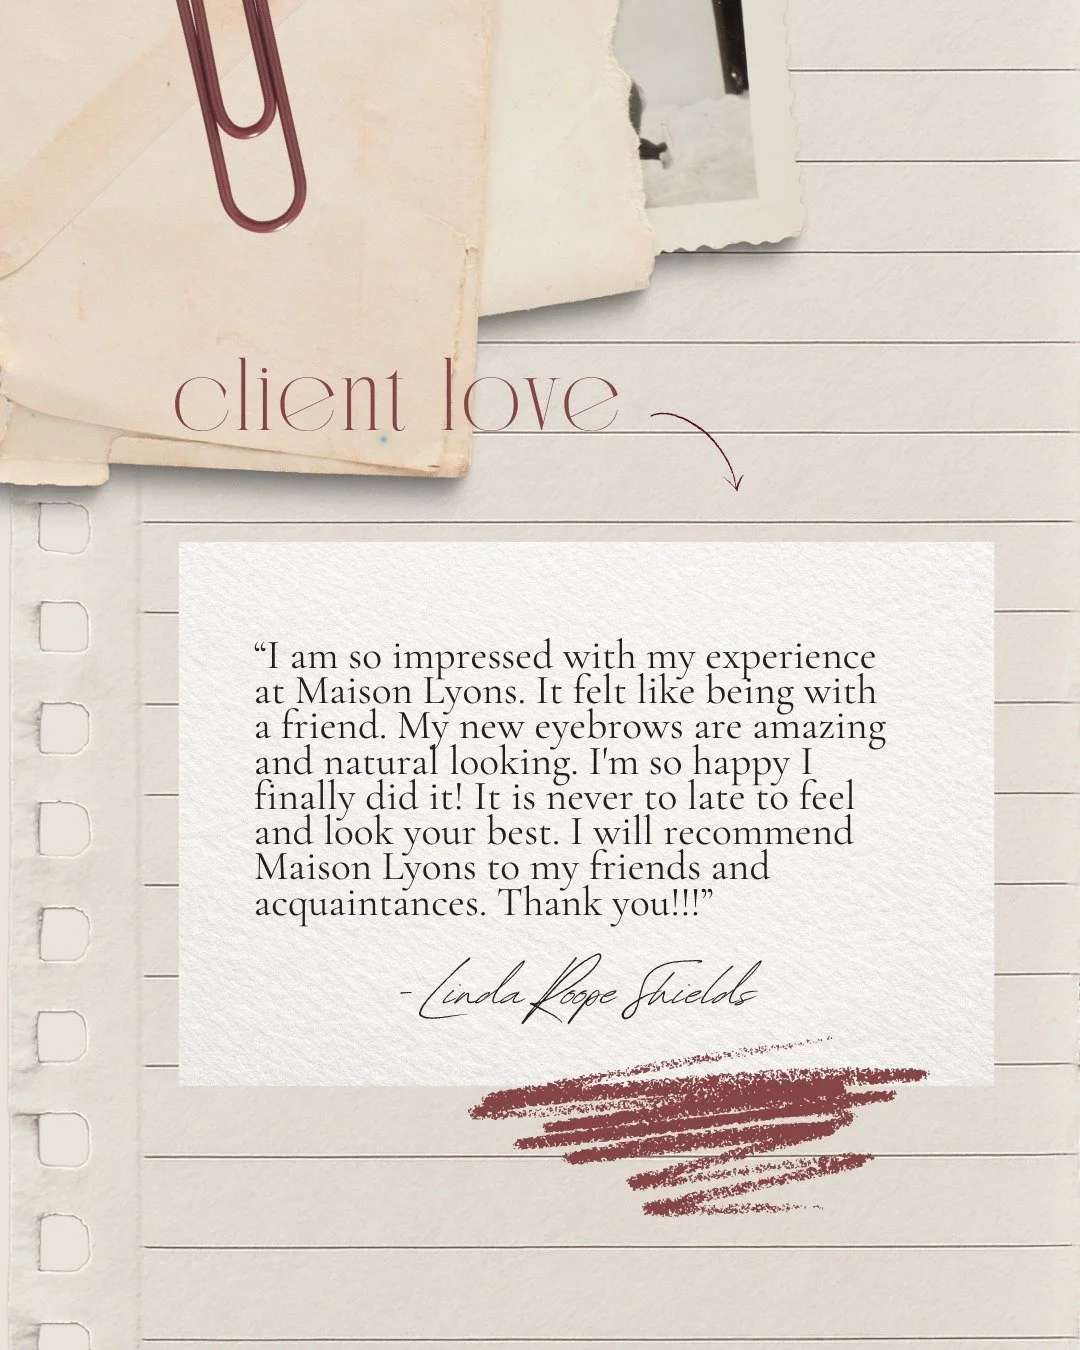 client love
“I am so impressed with my experience
at Maison Lyons. It felt like being with
a friend. My new eyebrows are amazing
and natural looking. I'm so happy I
finally did it! It is never to late to feel
and look your best. I will recommend
Maison Lyons to my friends and
acquaintances. Thank you!!!”
- Linda Roope Shields